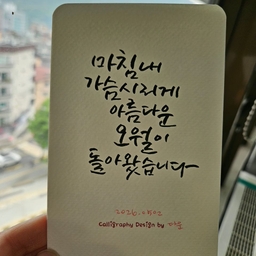 마침내
가슴시리게
아름다운
오월이
돌아왔습니다
Calligraphy Design by